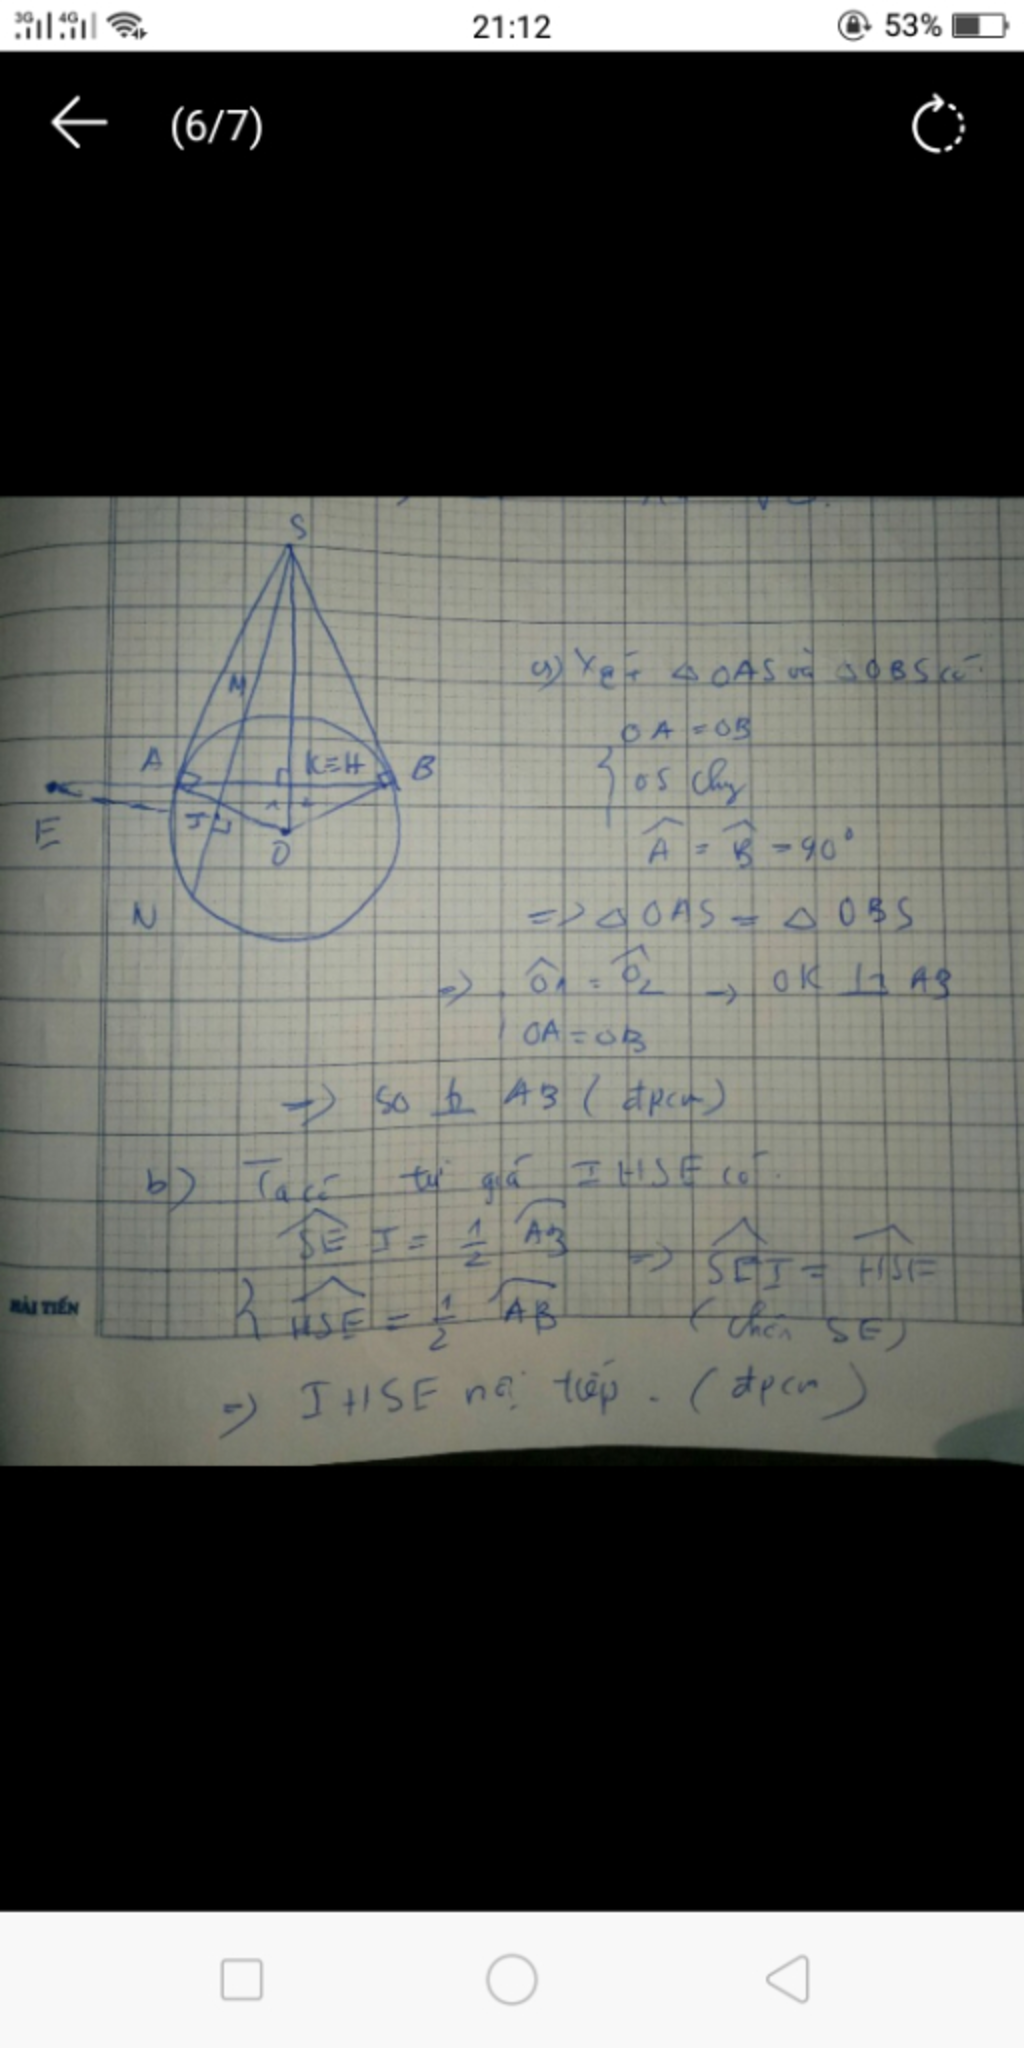 3G 4G 21:12 53%
(6/7)
S
M
A K≡H B
E I 1 2
O
N
a) Xét △OAS và △OBS có
OA = OB
{ OS chg
Â = B̂ = 90°
=> △OAS = △OBS
=> Ô1 = Ô2 → OK ⊥ AB
OA = OB
=> SO ⊥ AB (đpcm)
b) Ta có tứ giá IHSE có
SEI = 1/2 AB
=> SEI = HSE
{ HSE = 1/2 AB (chắn SE)
BÀI TIẾN
=> IHSE nội tiếp. (đpcm)